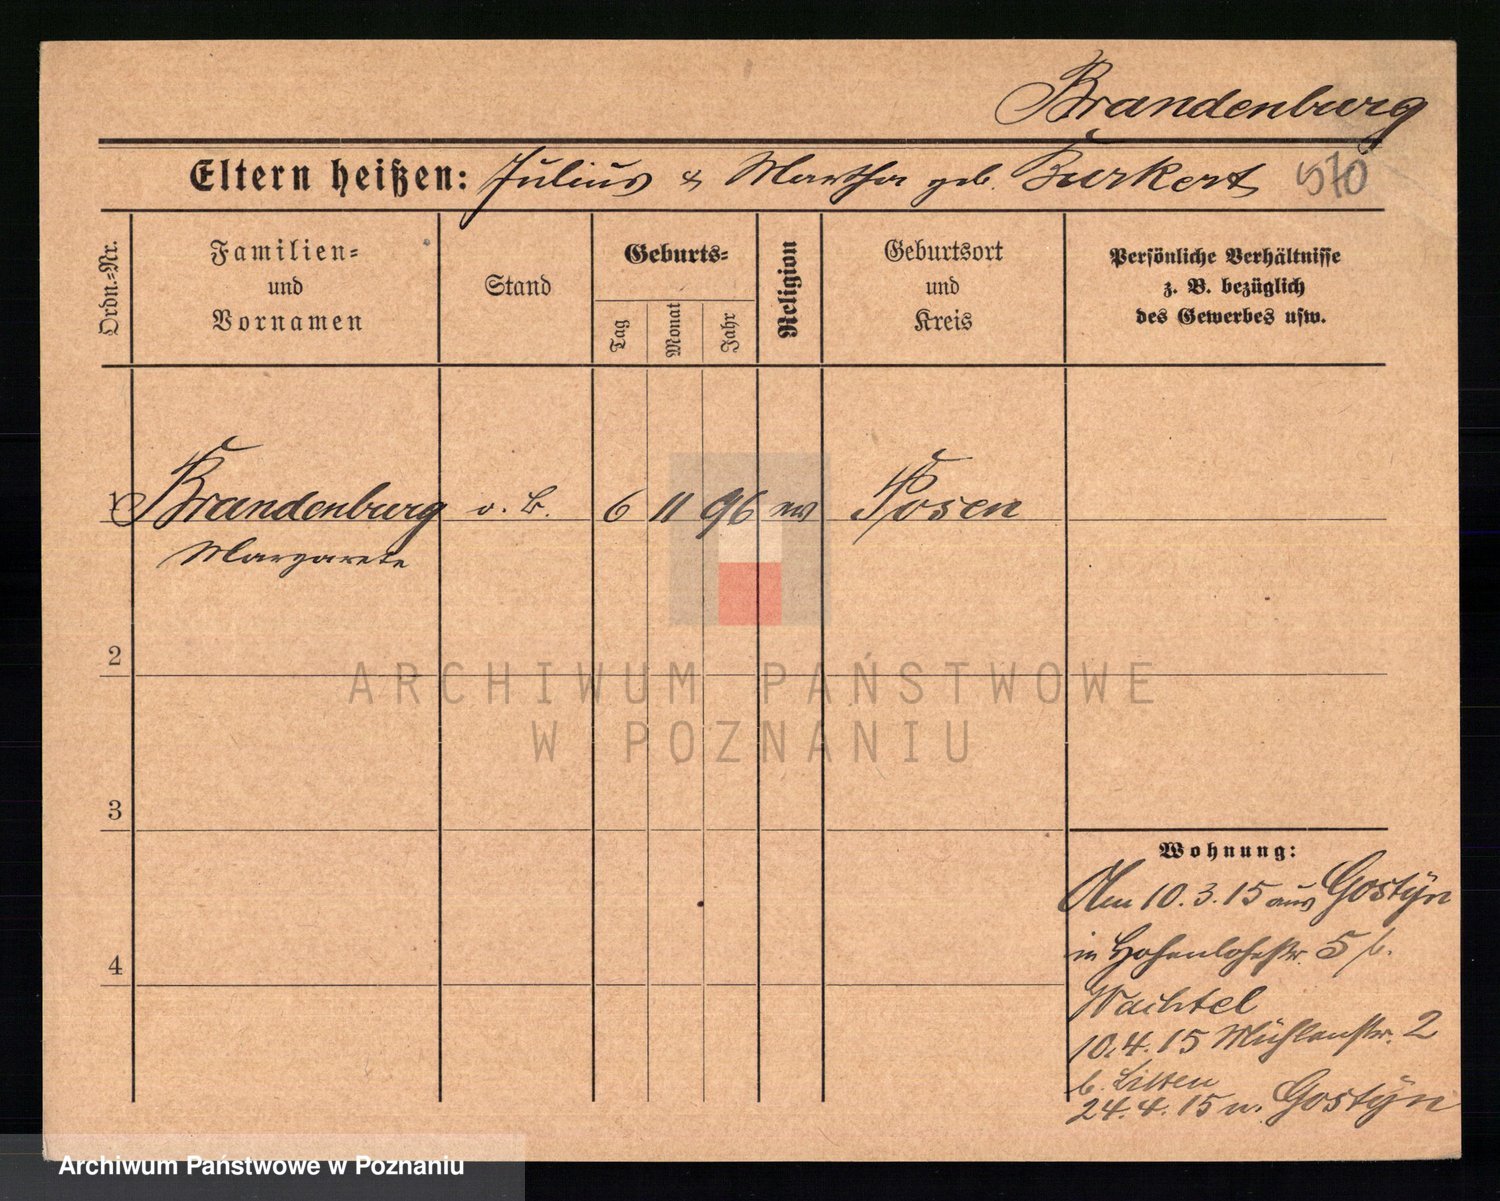 Brandenburg
Eltern heißen: Julius & Martha geb. Burkert 570
Ordn.-Nr.
Familien-
und
Vornamen
Stand
Geburts-
Tag
Monat
Jahr
Religion
Geburtsort
und
Kreis
Persönliche Verhältnisse
z. B. bezüglich
des Gewerbes usw.
1 Brandenburg o. B. 6 11 96 ev Posen
Margarete
2
ARCHIWUM PAŃSTWOWE
W POZNANIU
3
Wohnung:
Am 10.3.15 aus Gostÿn
in Hohenlohestr. 5 b.
Wachtel
4
10.4.15 Mühlenstr. 2
b. Litten
24.4.15 n. Gostÿn
Archiwum Państwowe w Poznaniu